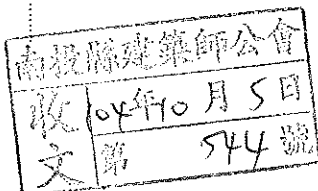 南投縣建築師公會
收文
104年10月5日
第544號